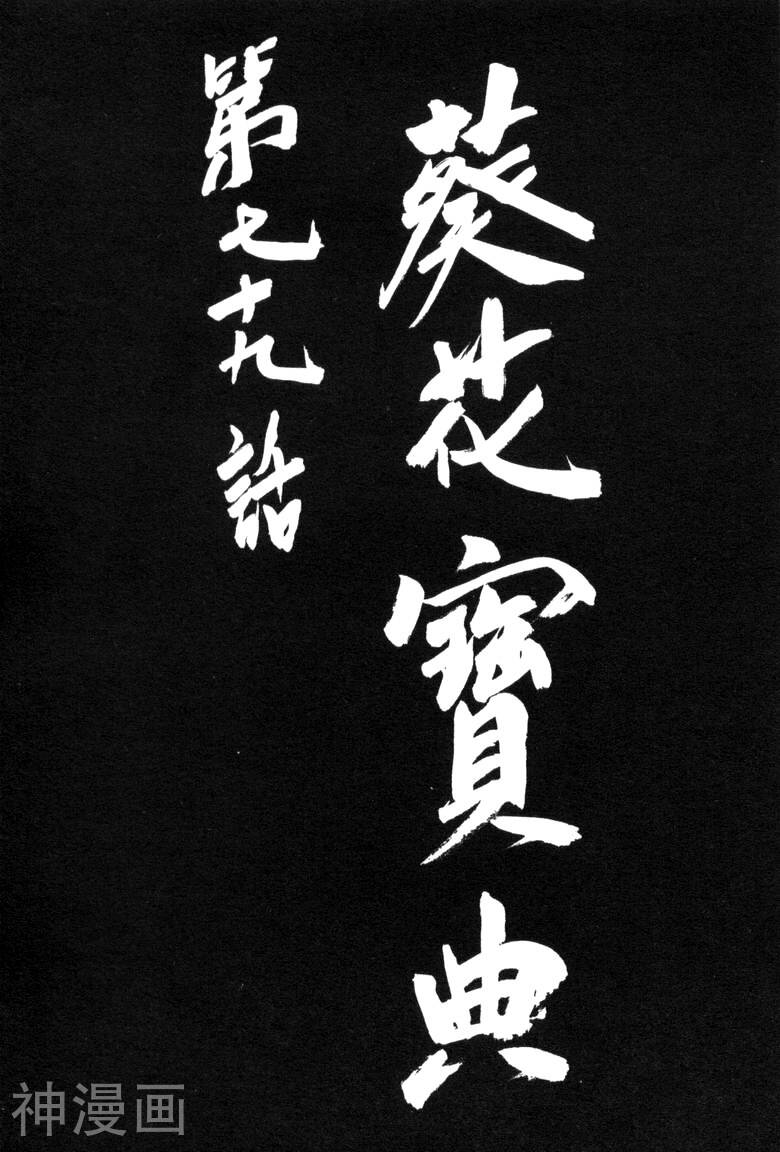 葵花寶典
第七十九話
神漫画